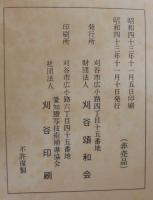 昭和四十三年十一月五日印刷
昭和四十三年十一月十日発行
(非売品)
刈谷市広小路四丁目十五番地
発行所
財団法人 刈谷頌和会
刈谷市広小路六丁目四十五番地
印刷所
愛知謄写技術補導協会
社団法人 刈谷印刷
不許複製